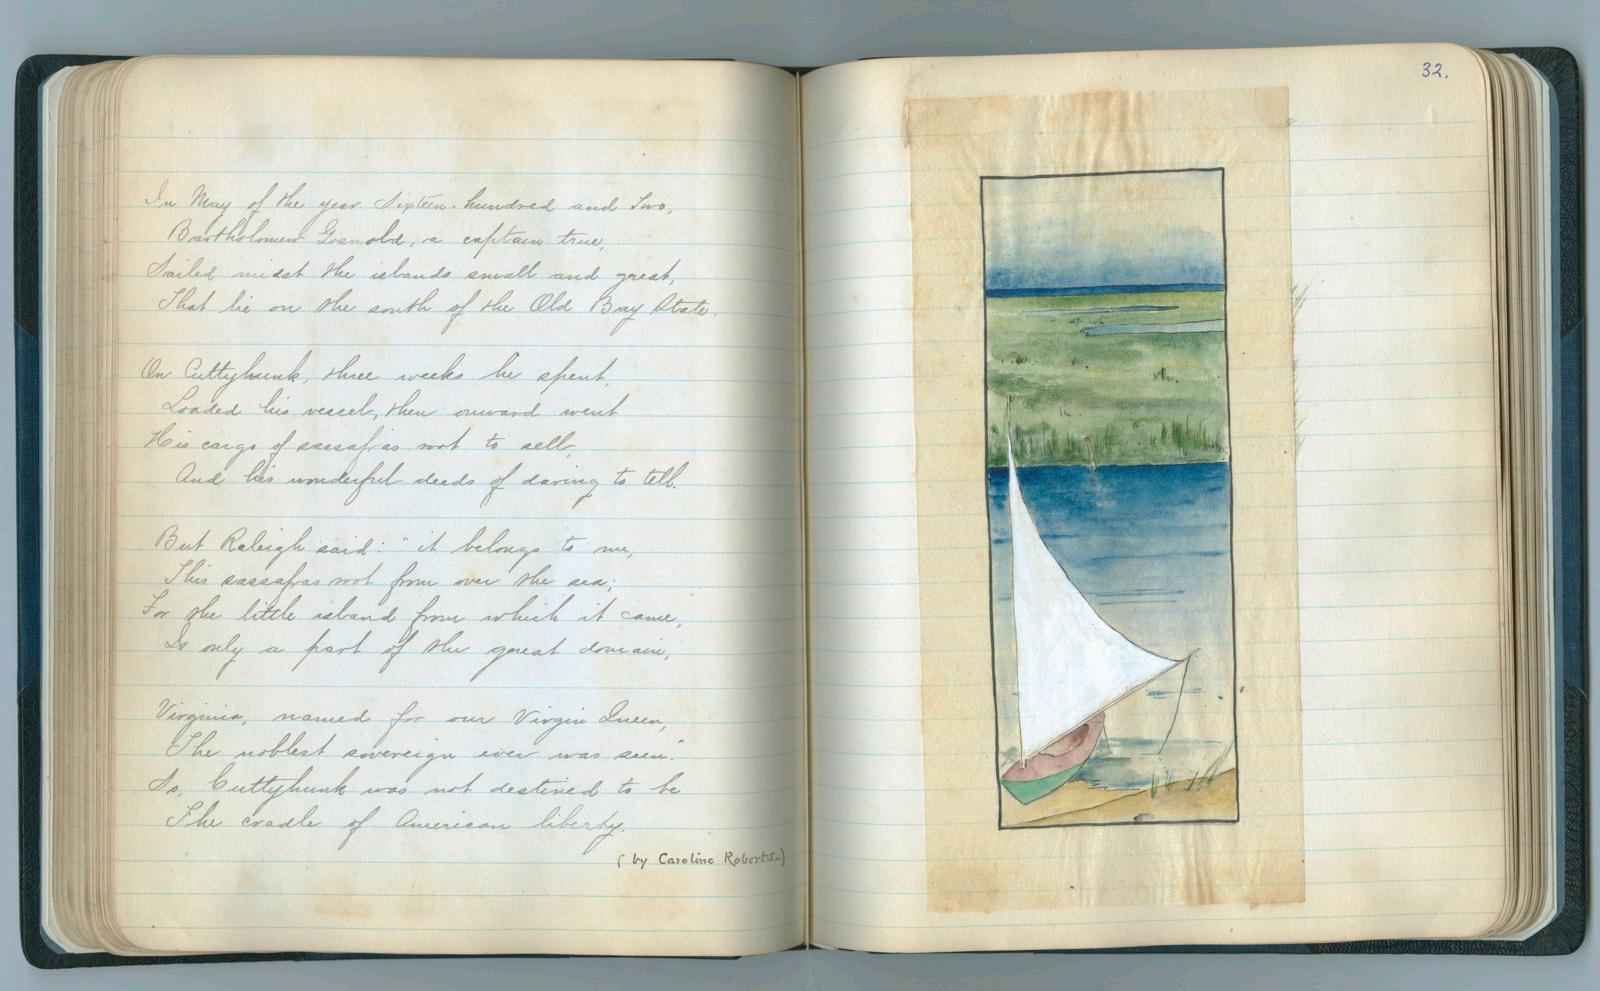 In May of the year Sixteen-hundred and Two,
Bartholomew Gosnold, a captain true,
Sailed midst the islands small and great,
That lie on the south of the Old Bay State.
On Cuttyhunk, three weeks he spent,
Loaded his vessel, then onward went
His cargo of sassafras root to sell,
And his wonderful deeds of daring to tell.
But Raleigh said: "it belongs to me,
This sassafras root from over the sea;
For the little island from which it came,
Is only a part of the great domain,
Virginia, named for our Virgin Queen,
The noblest sovereign ever was seen."
So, Cuttyhunk was not destined to be
The cradle of American liberty.
(by Caroline Roberts.)
32.